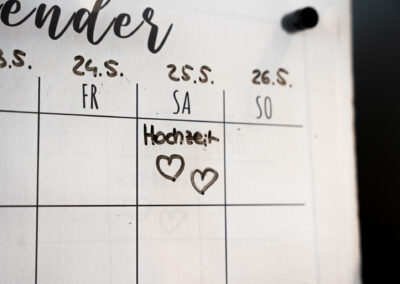 ender
3.5. 24.5. 25.5. 26.5.
FR SA SO
Hochzeit